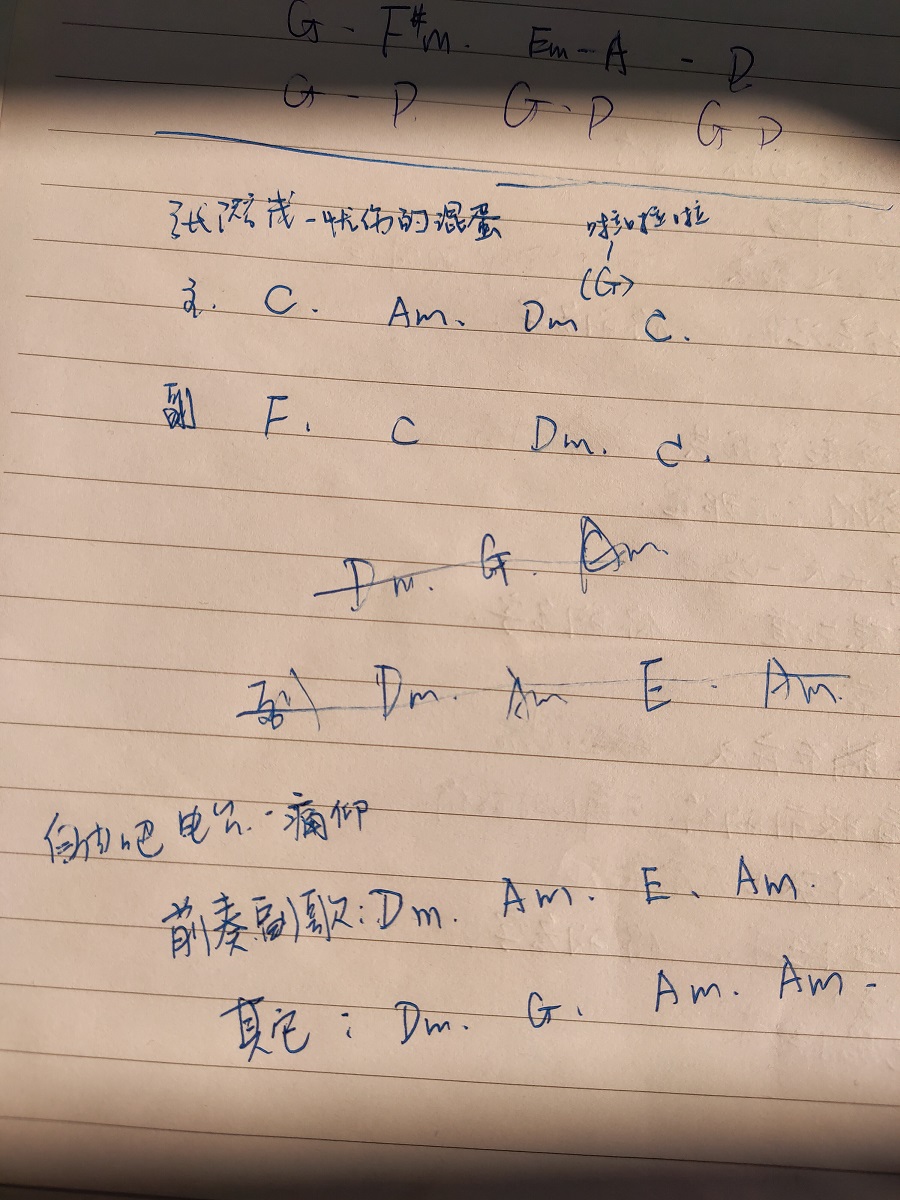 G - F#m. Em - A - D
G - D. G - D G D
张浅茂 - 忧伤的混蛋 啦啦啦啦
(G)
主. C. Am. Dm C.
副 F. C Dm. C.
Dm. G. Am.
副 Dm. Am E. Am.
自由吧电台. - 痛仰
前奏副歌: Dm. Am. E. Am.
其它: Dm. G. Am. Am -